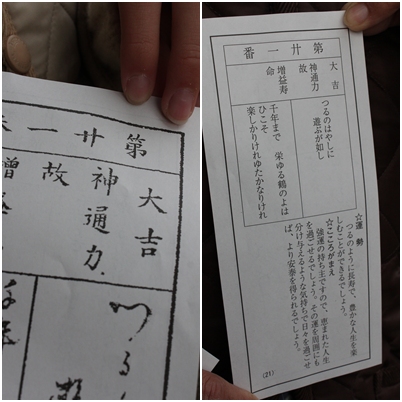 第廿一
大吉
神通力
故
増益
つる
第廿一番
大吉
神通力
故
増益寿
命
つるのはやしに
遊ぶが如し
千年まで 栄ゆる鶴のよは
ひこそ
楽しかりけれゆたかなりけれ
☆運勢
つるのように長寿で、豊かな人生を楽
しむことができるでしょう。
☆こころがまえ
強運の持ち主ですので、恵まれた人生
を過ごせるでしょう。その運を周囲にも
分け与えるような気持ちで日々を過ごせ
ば、より安泰を得られるでしょう。
(21)